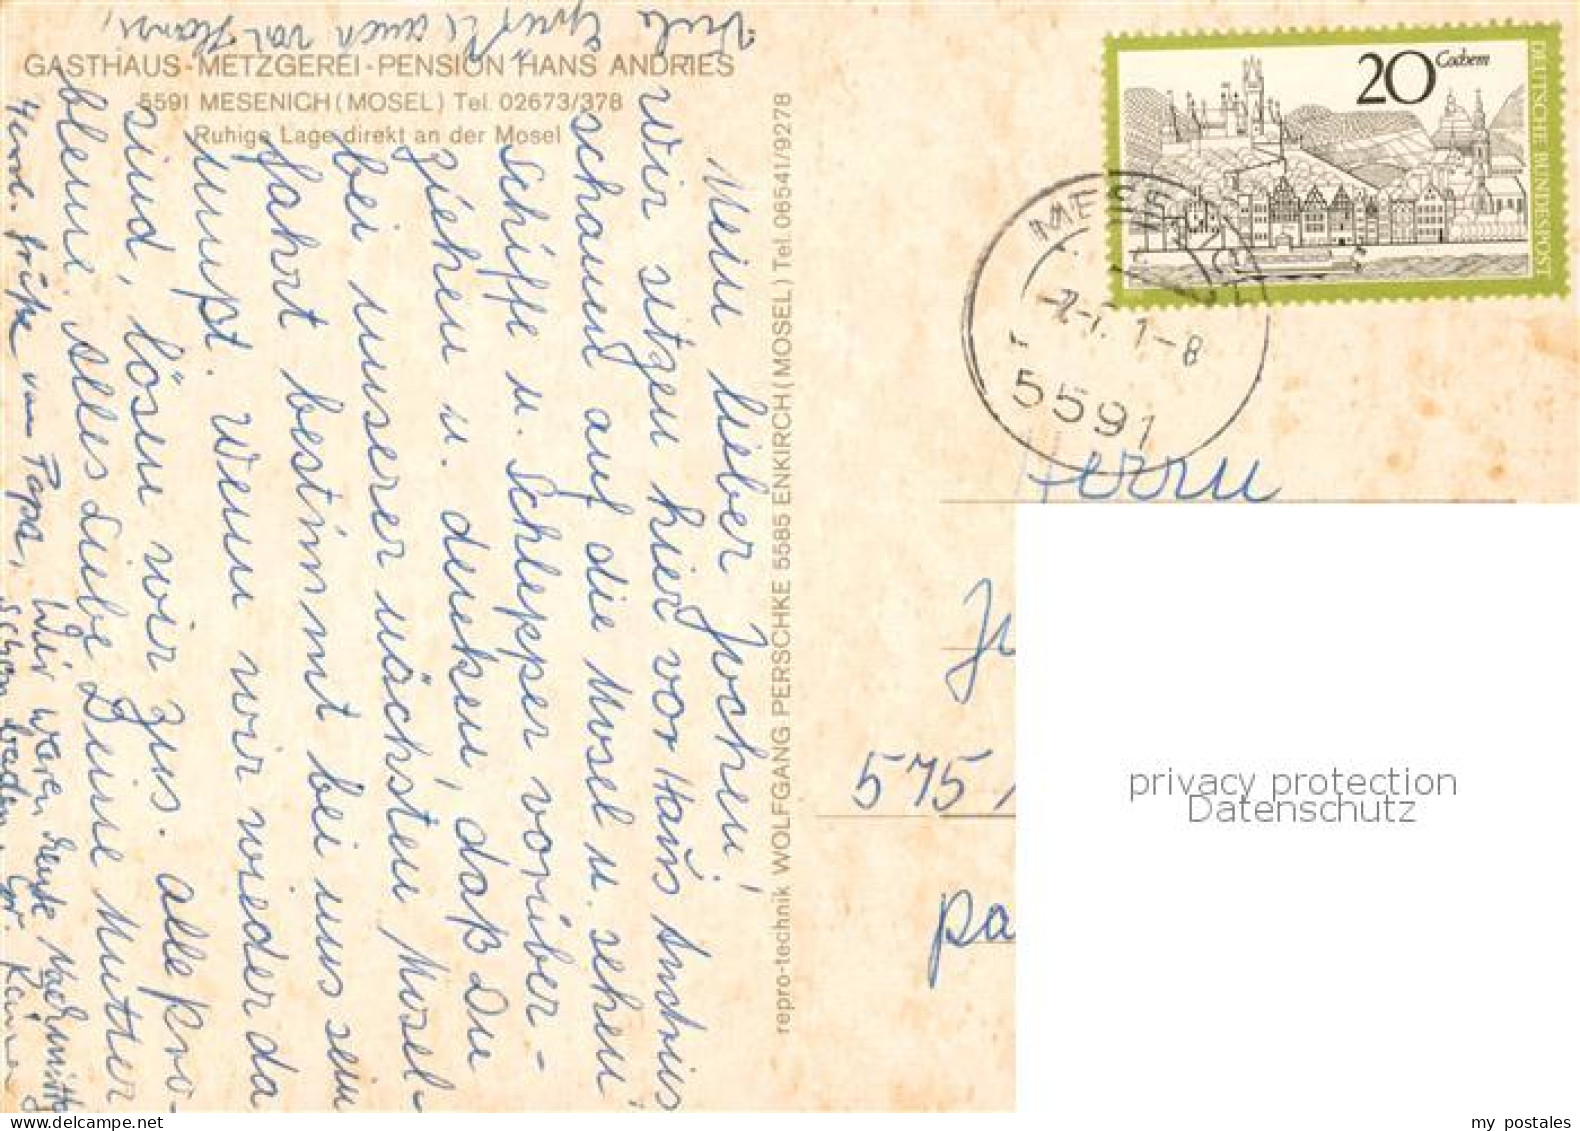 GASTHAUS-METZGEREI-PENSION HANS ANDRIES
5591 MESENICH (MOSEL) Tel. 02673/378
Ruhige Lage direkt an der Mosel
Mein lieber Jochen!
Wir sitzen hier vor Haus Andries
schauen auf die Mosel u. sehen
Schiffe u. Schlepper vorüber-
ziehen u. denken, daß Du
bei unserer nächsten Mosel-
fahrt bestimmt bei uns sein
mußt. Wenn wir wieder da
sind, lösen wir zus. alle Pro-
bleme. Alles Liebe Deine Mutter
Herzl. Grüße von Papa, Wir waren heute Nachmittag
schon baden. Gr.
Viele Grüße auch von Hans,
repro-technik WOLFGANG PERSCHKE 5585 ENKIRCH (MOSEL) Tel. 06541/9278
20 Cochem
DEUTSCHE BUNDESPOST
5591
Herrn
575
pa
privacy protection
Datenschutz
my postales